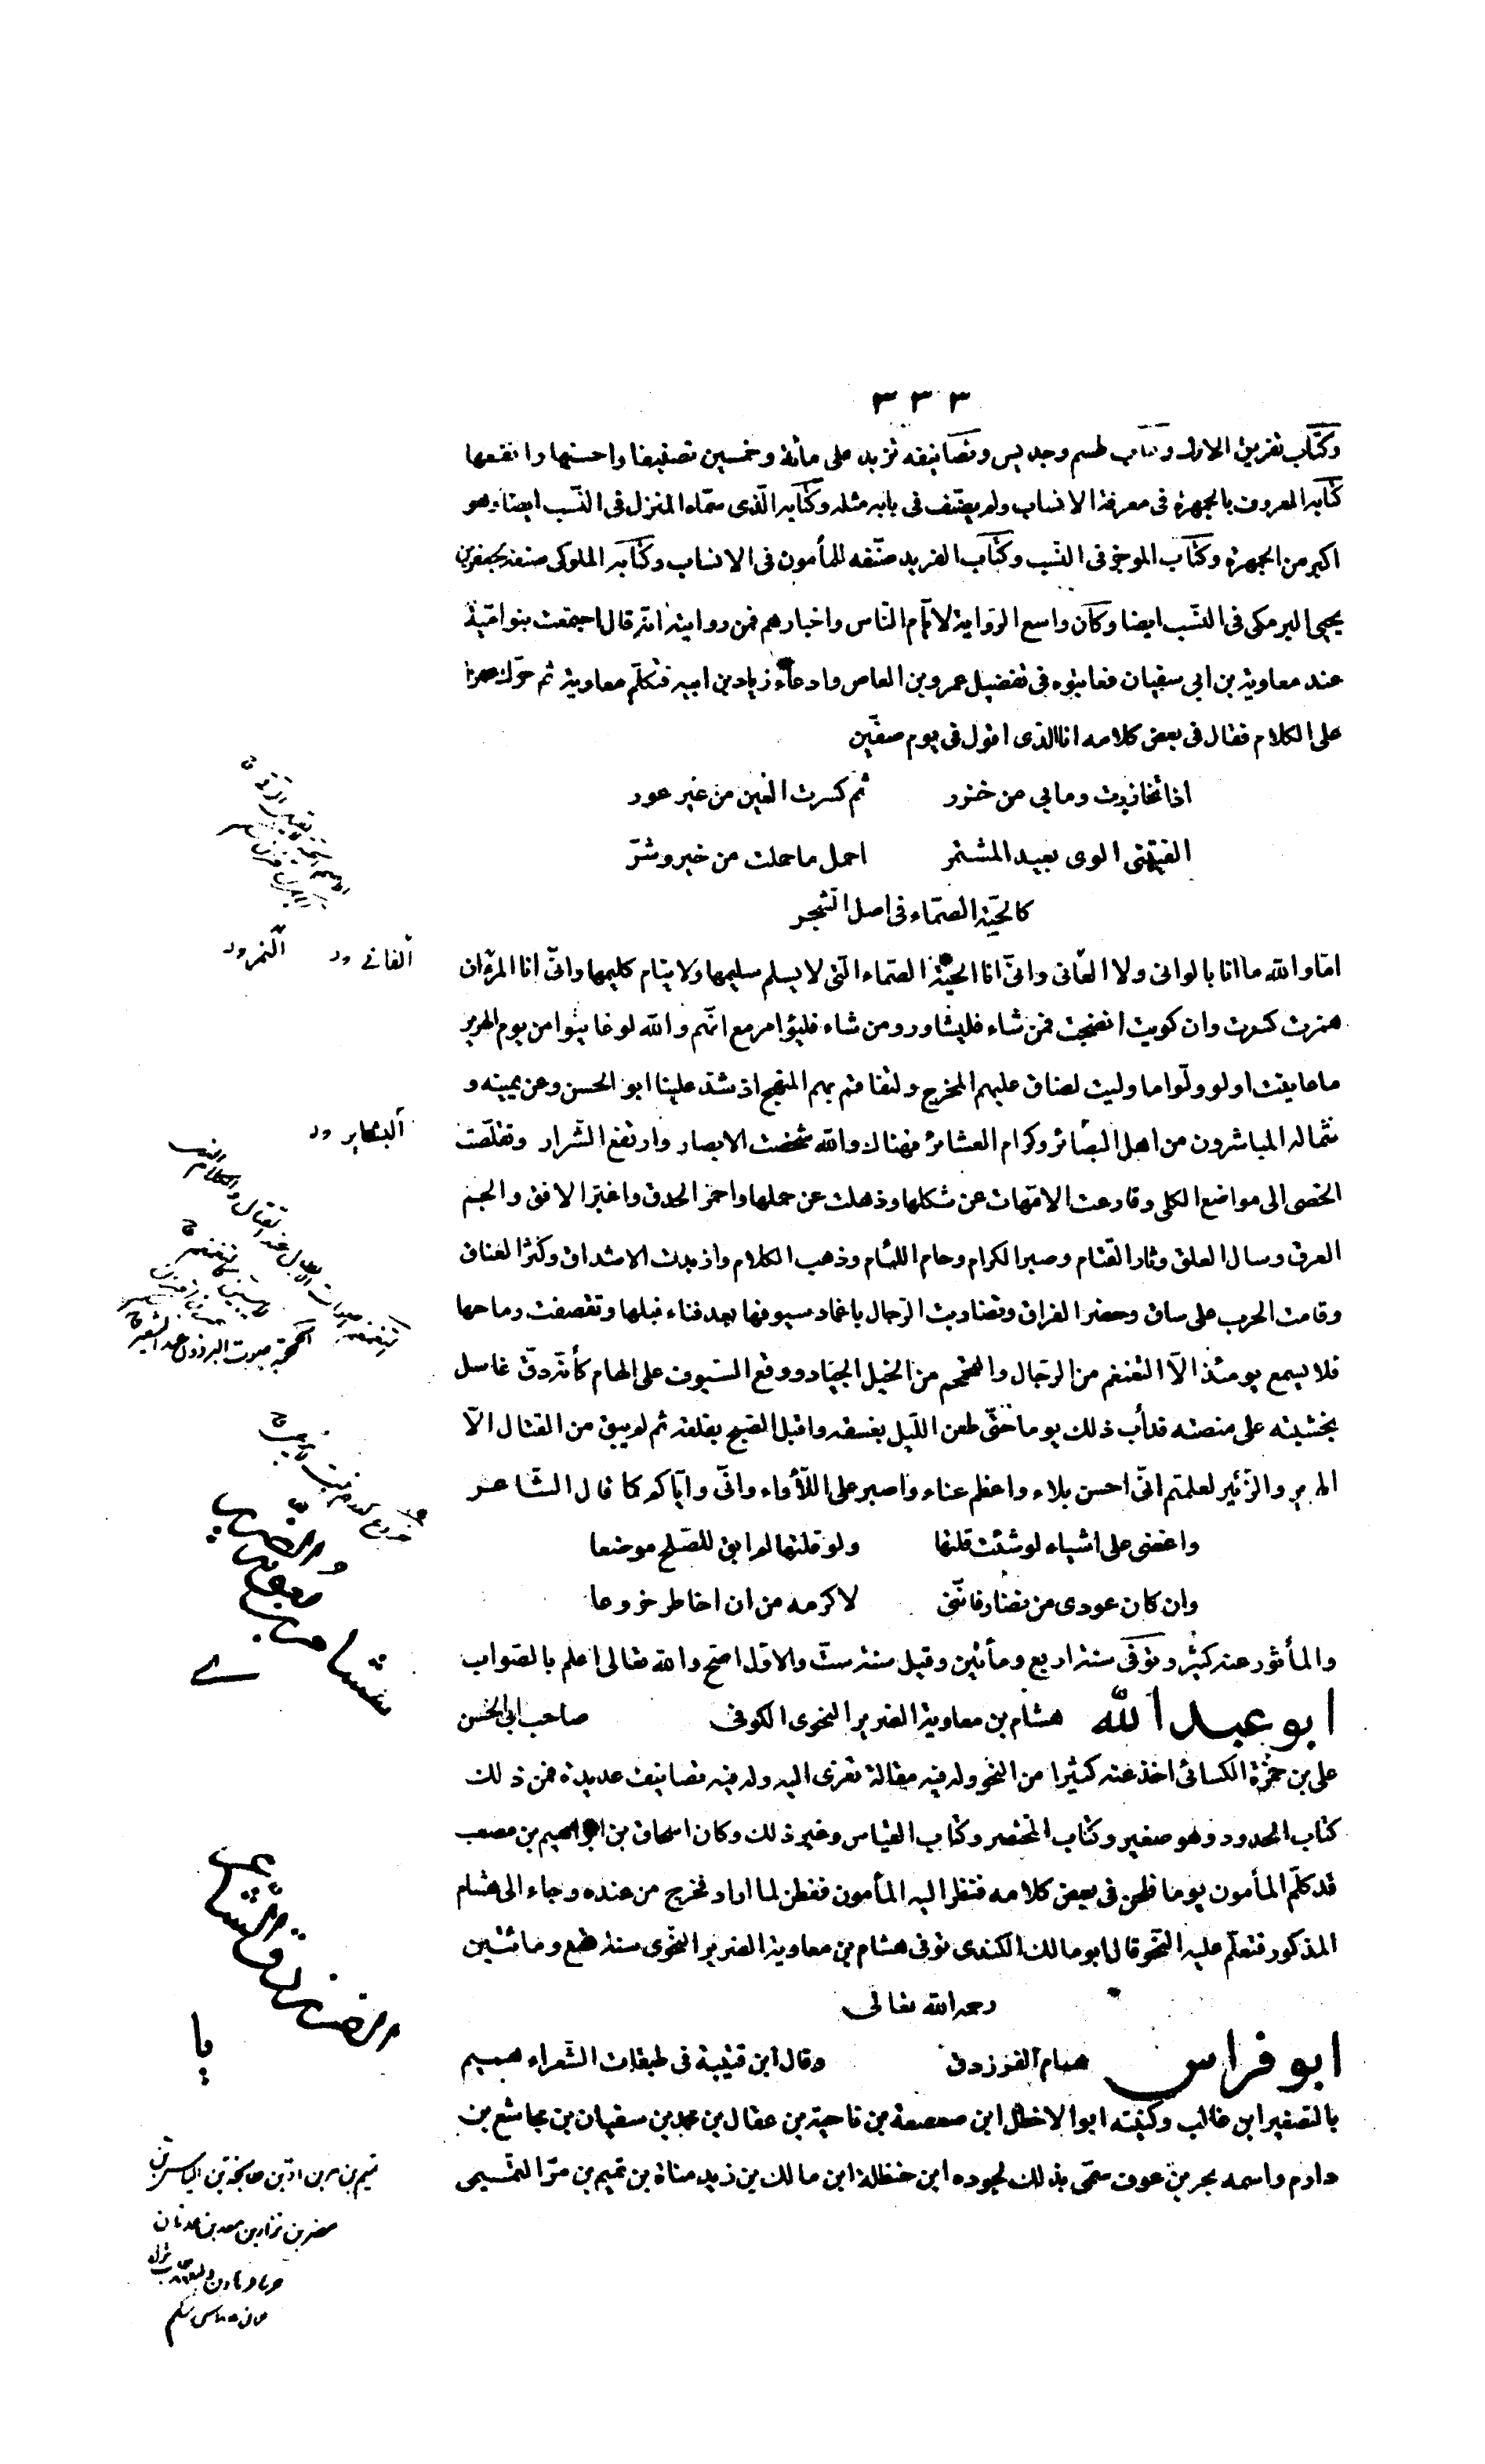 ٣٣٣
وكتاب تفريق الازد وكتاب طسم وجديس وتصانيفه تزيد على مائة وخمسين تصنيفا واحسنها وانفعها
كتابه المعروف بالجمهرة فى معرفة الانساب ولم يصنّف فى بابه مثله وكتابه الّذى سمّاه المنزل فى النّسب ايضا وهو
اكبر من الجمهرة وكتاب الموجز فى النّسب وكتاب الفريد صنّفه للمأمون فى الانساب وكتابه الملوكى صنفه لجعفر بن
يحيى البرمكى فى النّسب ايضا وكان واسع الرّواية لايّام النّاس واخبارهم فمن روايته انّه قال اجتمعت بنو اميّة
عند معاوية بن ابى سفيان فعاتبوه فى تفضيل عمرو بن العاص وادعاء زياد بن ابيه فتكلّم معاوية ثم حرّك عمرا
على الكلام فقال فى بعض كلامه انا الذى اقول فى يوم صفّين
اذا تخازرت ومابى من خزر ثم كسرت العين من غير عور
الفيتنى الوى بعيد المستمر احمل ما حملت من خير وشرّ
كالحيّة الصمّاء فى اصل الشّجر
امّا والله ما انا بالوانى ولا الفانى وانّى انا الحيّة الصماء الّتى لا يسلم سليمها ولا ينام كليمها وانّى انا المرء ان
همزت كسرت وان كويت انضجت فمن شاء فليشاور ومن شاء فليؤامر مع انّهم والله لو عاينوا من يوم الهرير
ما عاينت او لو ولّوا ما وليت لضاق عليهم المخرج ولتفاقم بهم المنهج اذ شدّ علينا ابو الحسن وعن يمينه و
شماله المباشرون من اهل البصائر وكرام العشائر فهناك والله شخصت الابصار وارتفع الشّرار وتقلّصت
الخصى الى مواضع الكلى وقارعت الامّهات عن ثكلها وذهلت عن حملها واحمرّ الحدق واغبرّ الافق والجم
العرق وسال العلق وثار القتام وصبر الكرام وخام اللئام وذهب الكلام وازبدت الاشداق وكثر العناق
وقامت الحرب على ساق وحضر الفراق وتضاربت الرّجال باغماد سيوفها بعد فناء نبلها وتقصفت رماحها
فلا يسمع يومئذ الّا التغمغم من الرّجال والتحمحم من الخيل الجياد ووقع السّيوف على الهام كأنّه دقّ غاسل
بخشبته على منصته فدأب ذلك يوما حتّى طعن اللّيل بغسقه واقبل الصّبح بفلقه ثم لم يبق من القتال الّا
الهرير والزّئير لعلمتم انّى احسن بلاء واعظم غناء واصبر على اللّأواء وانّى وايّاكم كما قال الشّاعر
واغضى على اشياء لو شئت قلتها ولو قلتها لم ابق للصّلح موضعا
وان كان عودى من نضار فانّنى لاكرمه من ان اخاطر خروعا
والمأثور عنه كثير وتوفّى سنة اربع ومأتين وقيل سنة ستّ والاوّل اصحّ والله تعالى اعلم بالصّواب
ابو عبد الله هشام بن معاوية الضرير النحوى الكوفى صاحب ابى الحسن
على بن حمزة الكسائى اخذ عنه كثيرا من النّحو وله فيه مقالة تعزى اليه وله فيه تصانيف عديدة فمن ذلك
كتاب الحدود وهو صغير وكتاب المختصر وكتاب القياس وغير ذلك وكان اسحاق بن ابراهيم بن مصعب
قد كلّم المأمون يوما فلحن فى بعض كلامه فنظر اليه المأمون ففطن لما اراد فخرج من عنده وجاء الى هشام
المذكور فتعلّم عليه النّحو قال ابو مالك الكندى توفى هشام بن معاوية الضرير النحّوى سنة تسع ومائتين
رحمه الله تعالى
ابو فراس همام الفرزدق وقال ابن قتيبة فى طبقات الشّعراء هميم
بالتصغير ابن غالب وكنيته ابو الاخطل ابن صعصعة بن ناجية بن عقال بن محمد بن سفيان بن مجاشع بن
دارم واسمه بحر بن عوف سمّى بذلك لجوده ابن حنظلة ابن مالك بن زيد مناة بن تميم بن مرّ التميمى
الفانى ود النمرود
البشاير ود
هشام بن معوية الضرير
الفرزدق الشاعر
يا
تميم بن مر بن ادّ بن طابخة بن الياس بن
مضر بن نزار بن معد بن عدنان